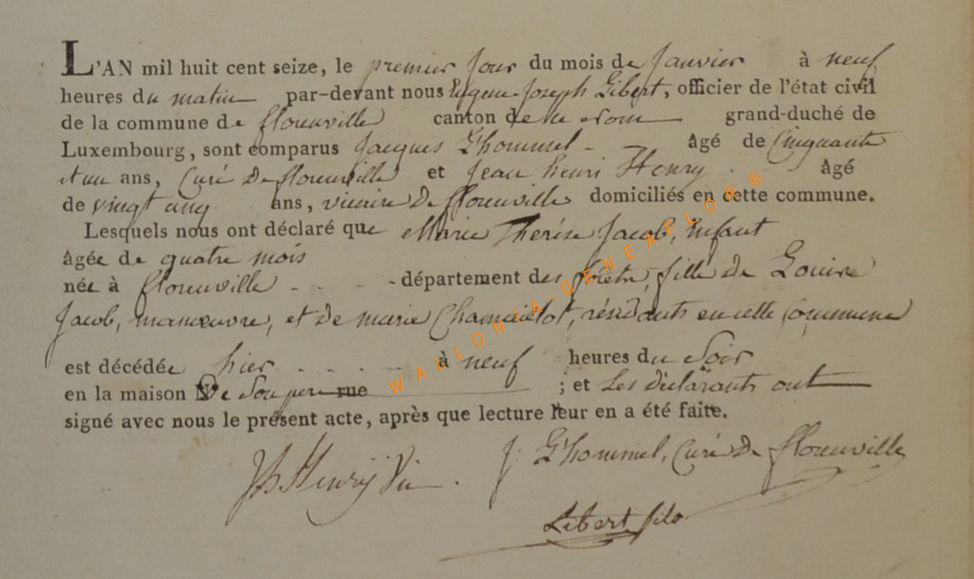 L'AN mil huit cent seize, le premier Jour du mois de Janvier à neuf
heures du matin par-devant nous Eugene Joseph Libert, officier de l'état civil
de la commune de florenville canton de ce nom grand-duché de
Luxembourg, sont comparus Jacques L'hommel - âgé de Cinquante
et un ans, Curé De florenville et Jean henri Henry . âgé
de vingt cinq ans, vicaire De florenville domiciliés en cette commune.
Lesquels nous ont déclaré que Marie Thérèse Jacob, Enfant
âgée de quatre mois
née à florenville - - - - - département des forêts, fille de
Jacob, manœuvre, et De marie résidants en cette Commune
est décédée hier - - - - - à neuf heures du Soir
en la maison De Son pere rue ; et Les Déclarants ont
signé avec nous le présent acte, après que lecture leur en a été faite.
Henry Vic. J: L'hommel, Curé De florenville
Libert fils
WALLONIA GENEALOR®